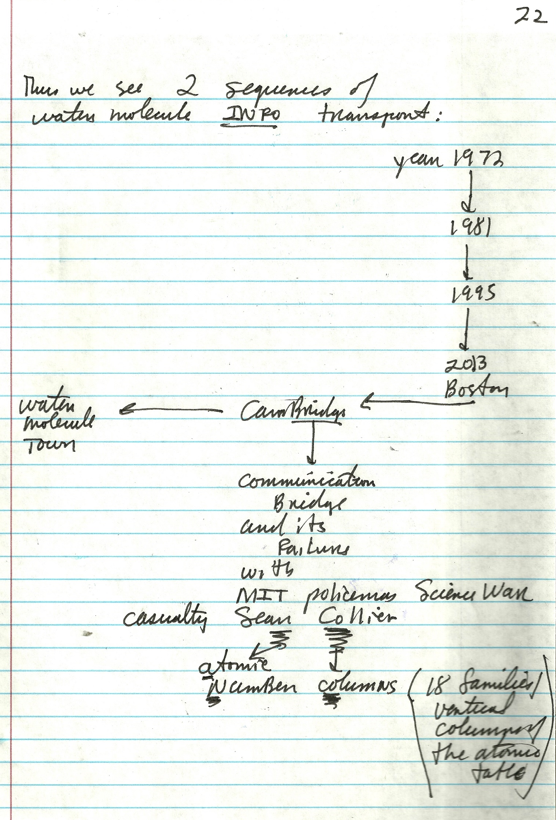 22
Thus we see 2 sequences of
water molecule INFO transport:
year 1972
1981
1995
2013
Boston
CamBridge
water
molecule
Town
communication
Bridge
and its
Failure
with
MIT policeman Science War
casualty Sean Collier
atomic
NumBer columns
(18 families/
vertical
columns of
the atomic
table)